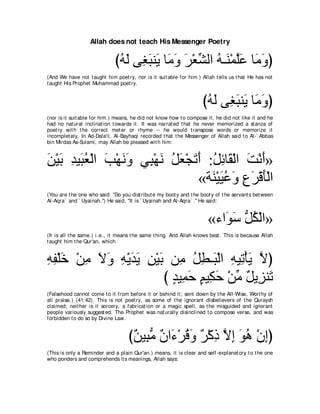 Allah does not teach His Messenger Poetry
﴿وَمَا عَلَّمْنَـهُ الشِّعْرَ وَمَا يَنبَغِى لَهُ﴾
(And We have not taught him poetry, nor is it suitable for him.) Allah tells us that He has not
taught His Prophet Muhammad poetry.
﴿وَمَا يَنبَغِى لَهُ﴾
(nor is it suitable for him.) means, he did not know how to compose it, he did not like it and he
had no natural inclination towards it. It was narrated that he never memorized a stanza of
poetry with the correct meter or rhyme -- he would transpose words or memorize it
incompletely. In Ad-Dala'il, Al-Bayhaqi recorded that the Messenger of Allah said to Al-`Abbas
bin Mirdas As-Sulami, may Allah be pleased with him:
«أَنْتَ الْقَائِلُ: أَتَجْعَلُ نَهْبِي وَنَهْبَ الْعُبَيْدِ بَيْنَ
الْأَقْرَعِ وَعُيَيْنَة»
(You are the one who said: "Do you distribute my booty and the booty of the servants between
Al-Aqra` and `Uyainah.") He said, "It is `Uyainah and Al-Aqra`." He said:
«الْكُلُّ سَوَاء»
(It is all the same.) i.e., it means the same thing. And Allah knows best. This is because Allah
taught him the Qur'an, which
﴿لاَّ يَأْتِيهِ الْبَـطِلُ مِن بَيْنِ يَدَيْهِ وَلاَ مِنْ خَلْفِهِ
تَنزِيلٌ مِّنْ حَكِيمٍ حَمِيدٍ ﴾
(Falsehood cannot come to it from before it or behind it, sent down by the All-Wise, Worthy of
all praise.) (41:42). This is not poetry, as some of the ignorant disbelievers of the Quraysh
claimed; neither is it sorcery, a fabrication or a magic spell, as the misguided and ignorant
people variously suggested. The Prophet was naturally disinclined to compose verse, and was
forbidden to do so by Divine Law.
﴿إِنْ هُوَ إِلاَّ ذِكْرٌ وَقُرْءَانٌ مُّبِينٌ﴾
(This is only a Reminder and a plain Qur'an.) means, it is clear and self-explanatory to the one
who ponders and comprehends its meanings, Allah says: